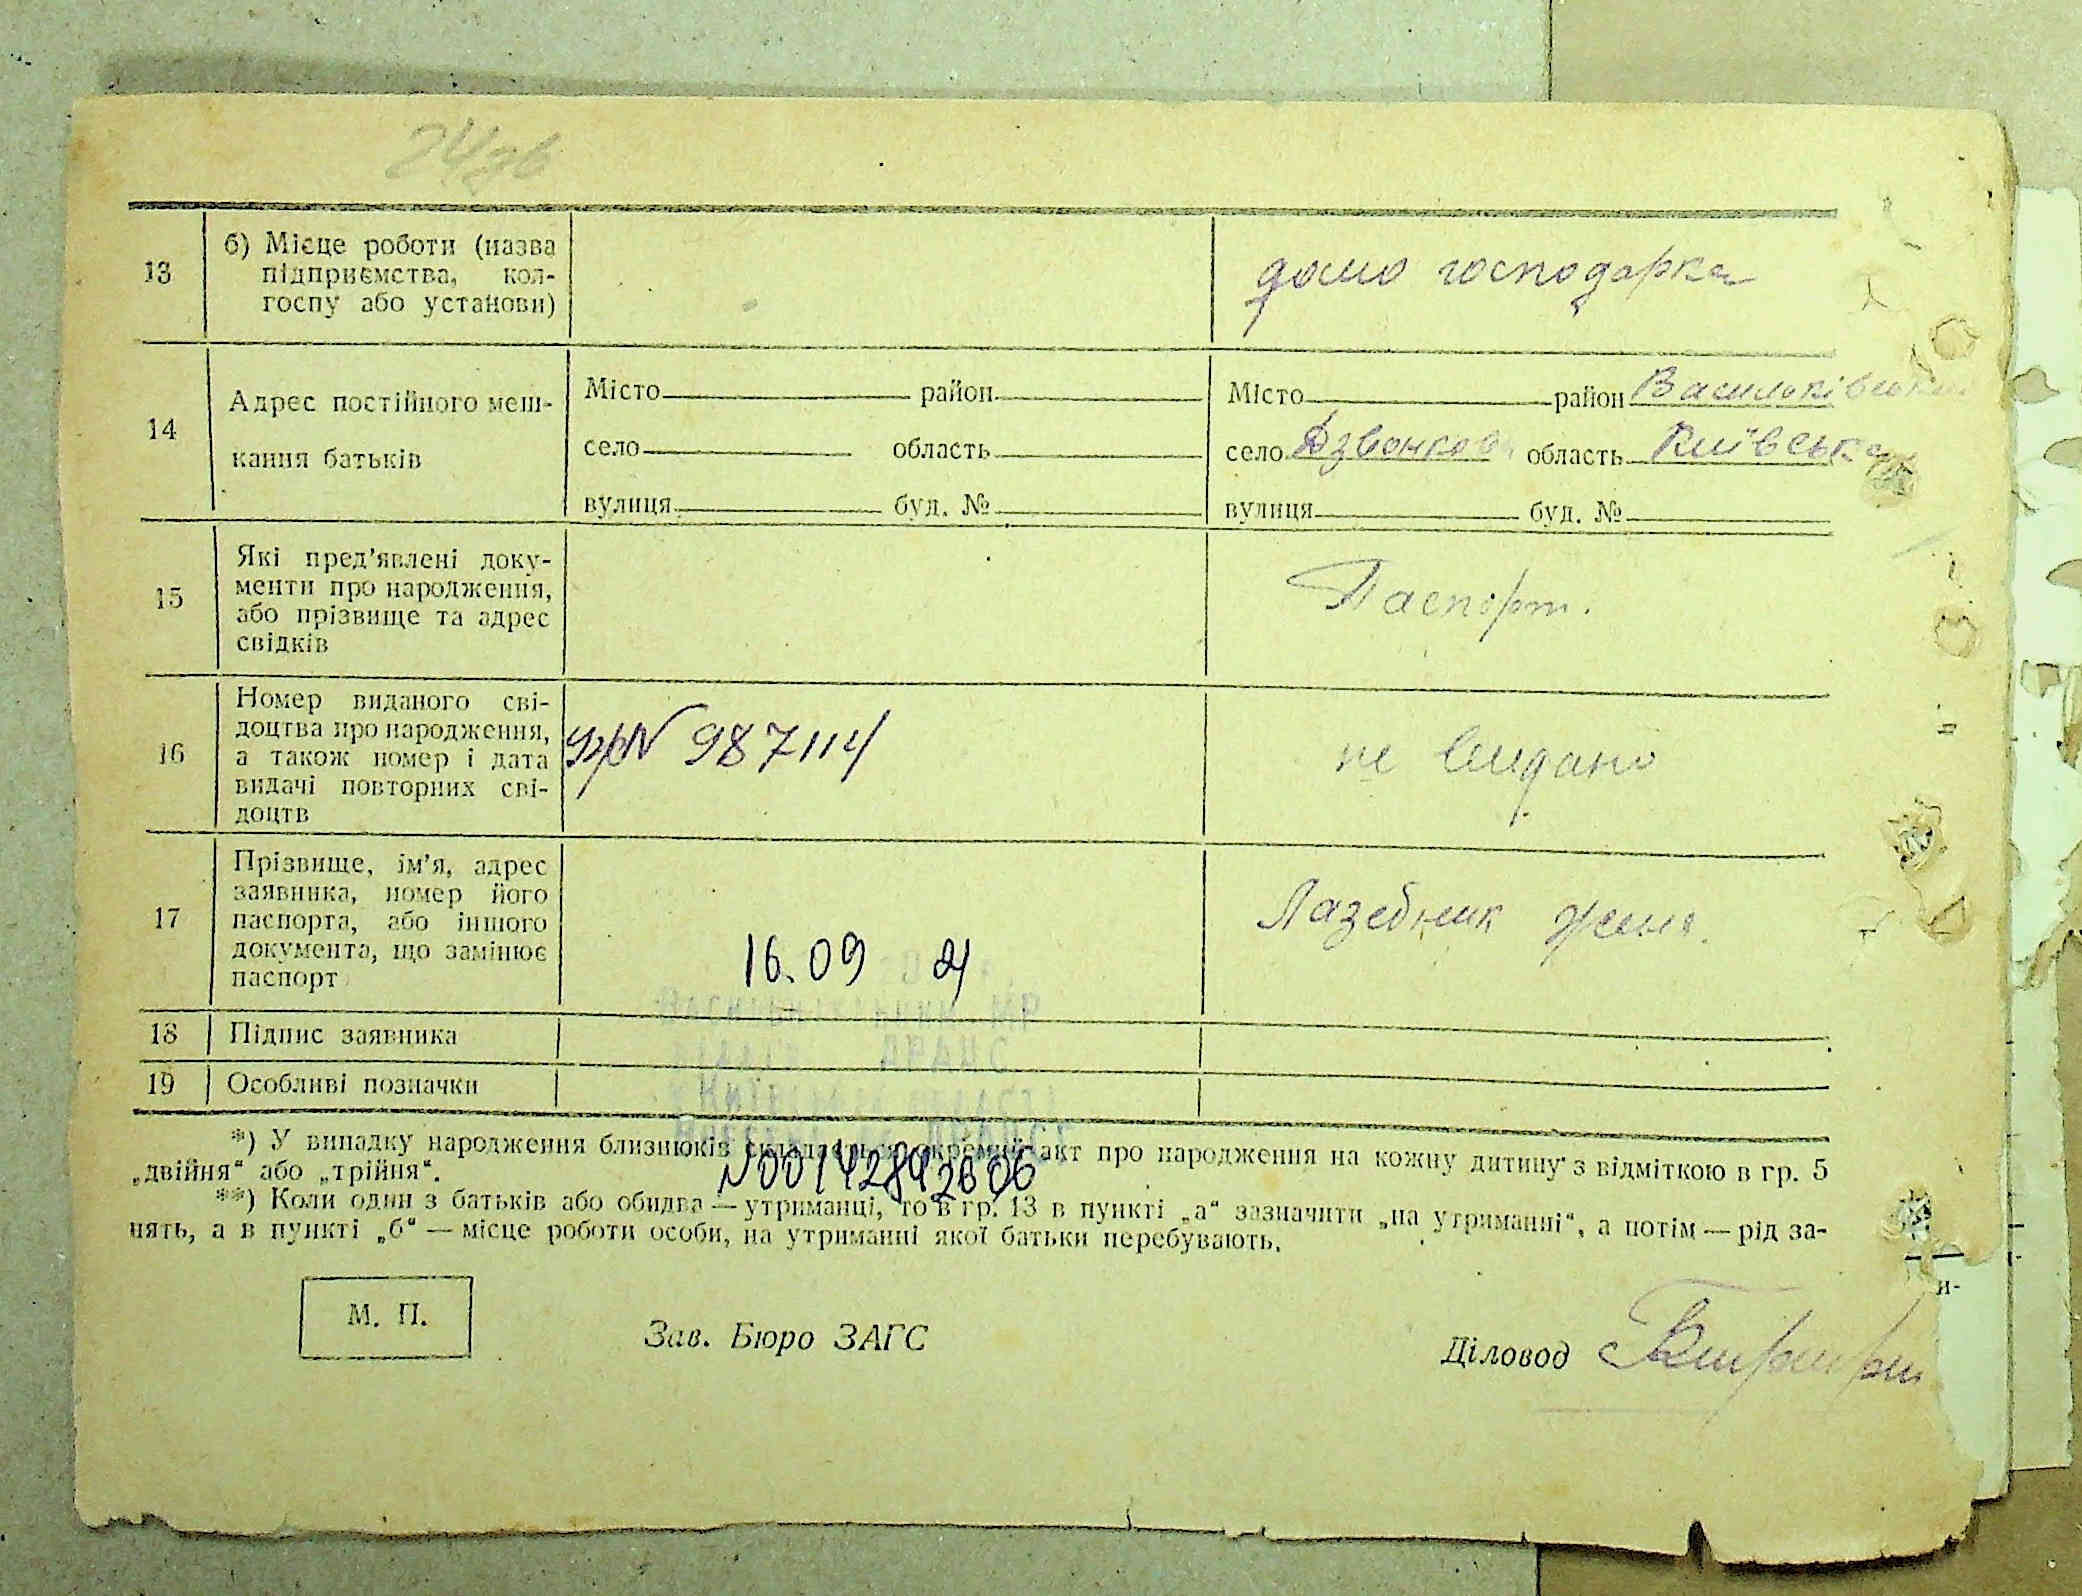 13
б) Місце роботи (назва
підприємства, кол-
госпу або установи)
домо господарка
14
Адрес постійного меш-
кання батьків
Місто район
село область
вулиця буд. №
Місто район Васильківський
село Дзвонкова область Київська
вулиця буд. №
15
Які пред'явлені доку-
менти про народження,
або прізвище та адрес
свідків
Паспорт.
16
Номер виданого сві-
доцтва про народження,
а також номер і дата
видачі повторних сві-
доцтв
№ 987114
не видано
17
Прізвище, ім'я, адрес
заявника, номер його
паспорта, або іншого
документа, що замінює
паспорт
16.09
Лазебник
18 Підпис заявника
19 Особливі позначки
*) У випадку народження близнюків складається окремий акт про народження на кожну дитину з відміткою в гр. 5
„двійня“ або „трійня“.
N00142842606
**) Коли один з батьків або обидва — утриманці, то в гр. 13 в пункті „а“ зазначити „на утриманні“, а потім — рід за-
нять, а в пункті „б“ — місце роботи особи, на утриманні якої батьки перебувають.
М. П.
Зав. Бюро ЗАГС
Діловод